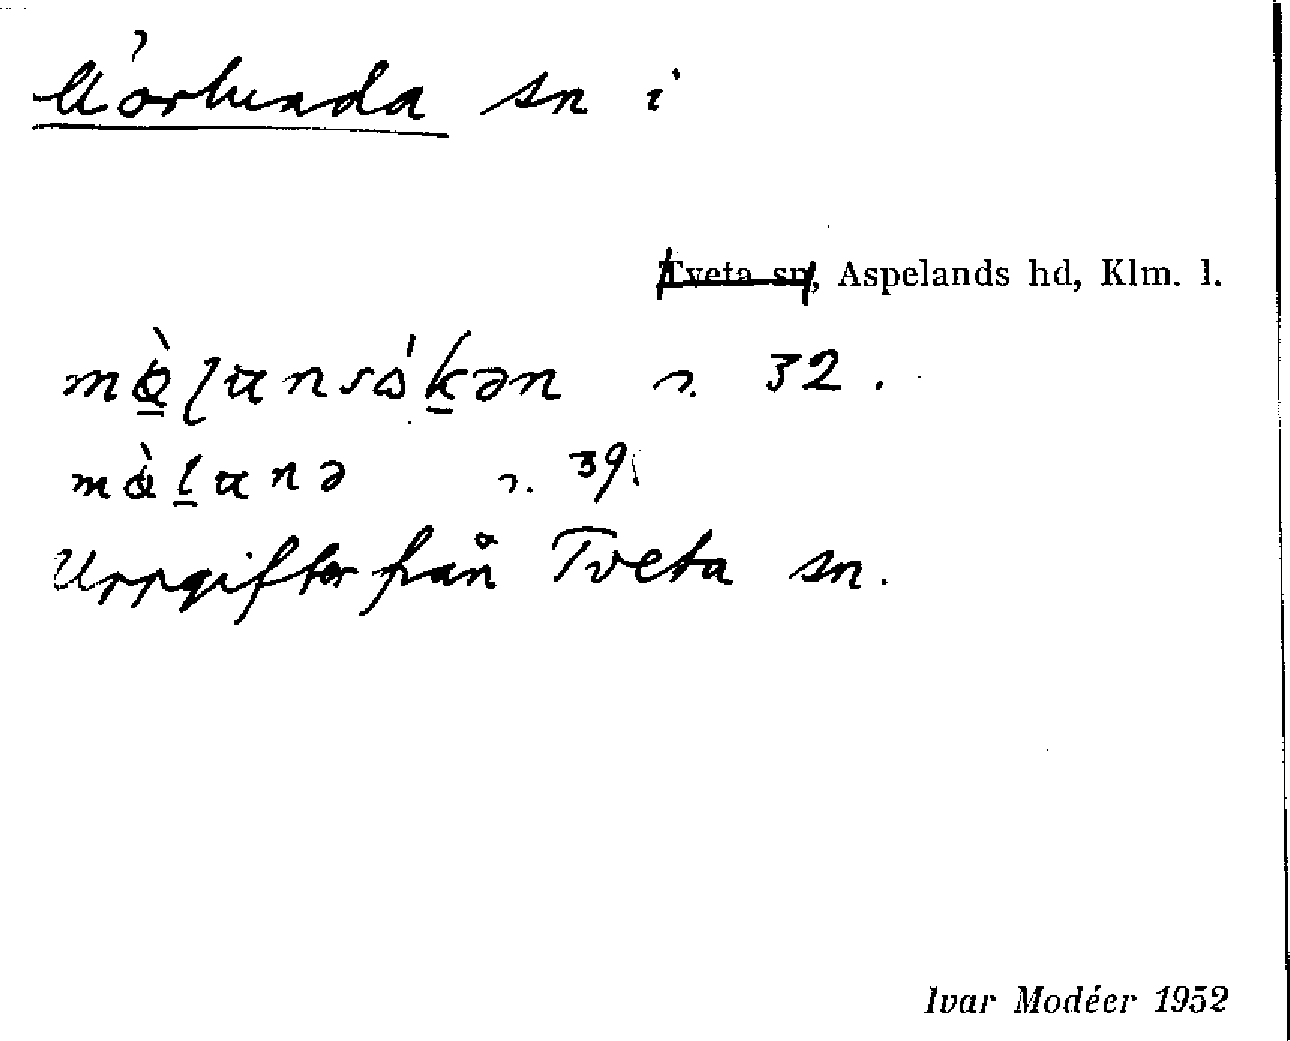 Mörlunda sn i
Tveta sn, Aspelands hd, Klm. l.
mø̀ḷunsókən s. 32.
mø̀lunə s. 39.
Uppgifter från Tveta sn.
Ivar Modéer 1952